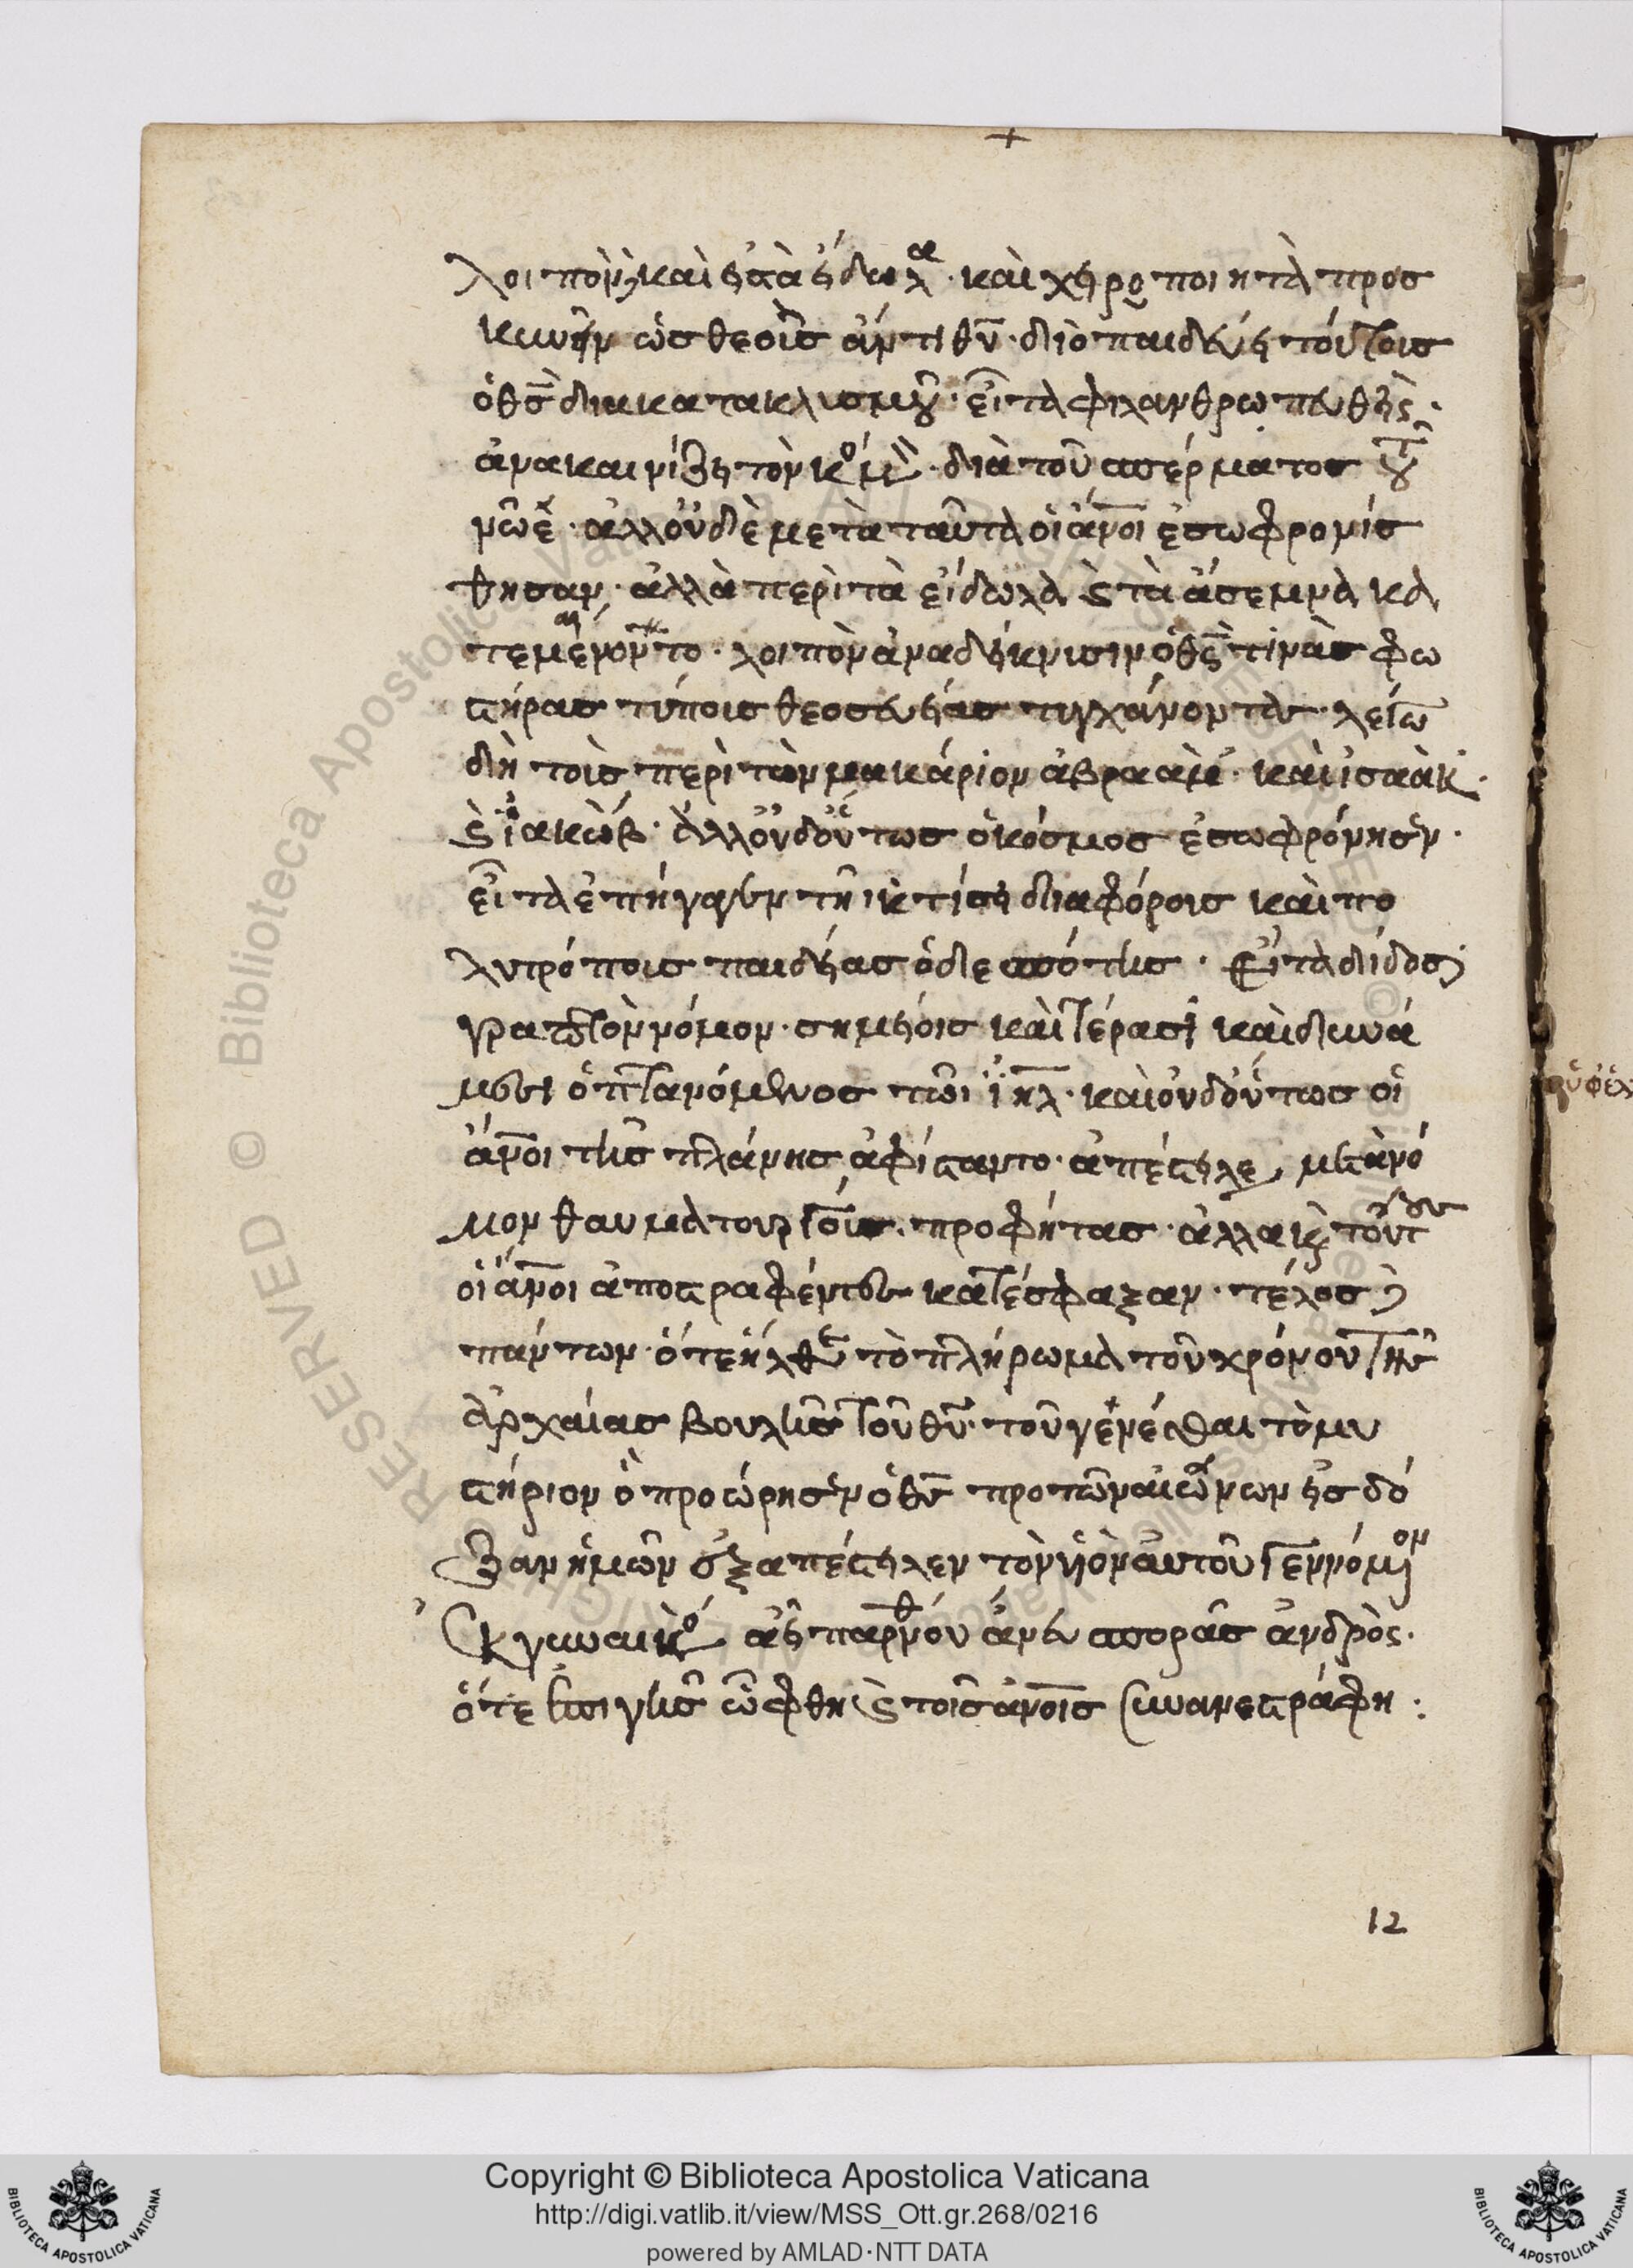 λοιπὸν καὶ εἰς τὰ εἴδωλα · καὶ χειροποιητὰ προσ
κυνεῖν ὡς θεοῖς ἀντὶ θῦ · διὸ παιδεύει τούτοις
ὁ θς̅ δια κατακλισμοῦ · εἶτα φιλανθρωπευθεὶς ·
ἀνακαινίζει τὸν κόσμον · διὰ τοῦ σπέρματος τοῦ
νῶε · ἀλλ οὐδὲ μετὰ ταῦτα οἱ ἀνοι ἐσωφρονίσ
θησαν · ἀλλὰ περὶ τὰ εἴδωλα καὶ τὰ ἄσεμνα κα
τεμαίνοντο · λοιπὸν ἀναδείκνισιν ὁ θς̅ τινὰς φω
στήρας τύποις θεοσεβείας τυγχάνοντας · λέγω
δὴ τοῖς περὶ τὸν μακάριον ἀβραὰμ · καὶ ἰσαὰκ ·
καὶ ἰακὼβ · ἀλλ οὐδ οὕτως ὁ κόσμος ἐσωφρόνησεν ·
εἶτα ἐπήγαγεν τῆι κτίσει διαφόροις καὶ πο
λυτρόποις παιδείας ὁ δεσπότης · Εἶτα δίδοσι
γραπτὸν νόμον · σημείοις καὶ τέρασι καὶ δυνά
μεσι ὀπτανόμενος τῶι ιηλ · καὶ οὐδ οὕτως οἱ
ἄνοι τῆς πλάνης ἀφίσταντο · ἀπέστειλε μετὰ νό
μον θαυματουργοὺς προφήτας · ἀλλα καὶ τούτους
οἱ ἄνοι ἀποστραφέντες κατέσφαξαν · τέλος δὲ
πάντων · ὅτε ἦλθεν τὸ πλήρωμα τοῦ χρόνου τῆς
ἀρχαίας βουλῆς τοῦ θῦ · τοῦ γενέσθαι τὸ μυ
στήριον ὃ προώρησεν ὁ θς προ τῶν αἰώνων εἰς δό
ξαν ἡμῶν ἐξαπέστειλεν τὸν υἱὸν αὐτοῦ γεννόμενον
ἐκ γυναικὸς ἀειπαρθένου ἄνευ σπορᾶς ἀνδρὸς ·
ὅτε ἐπι γῆς ὤφθη καὶ τοῖς ἀνοις συνανεστράφη :
12
Copyright © Biblioteca Apostolica Vaticana
http://digi.vatlib.it/view/MSS_Ott.gr.268/0216
powered by AMLAD·NTT DATA